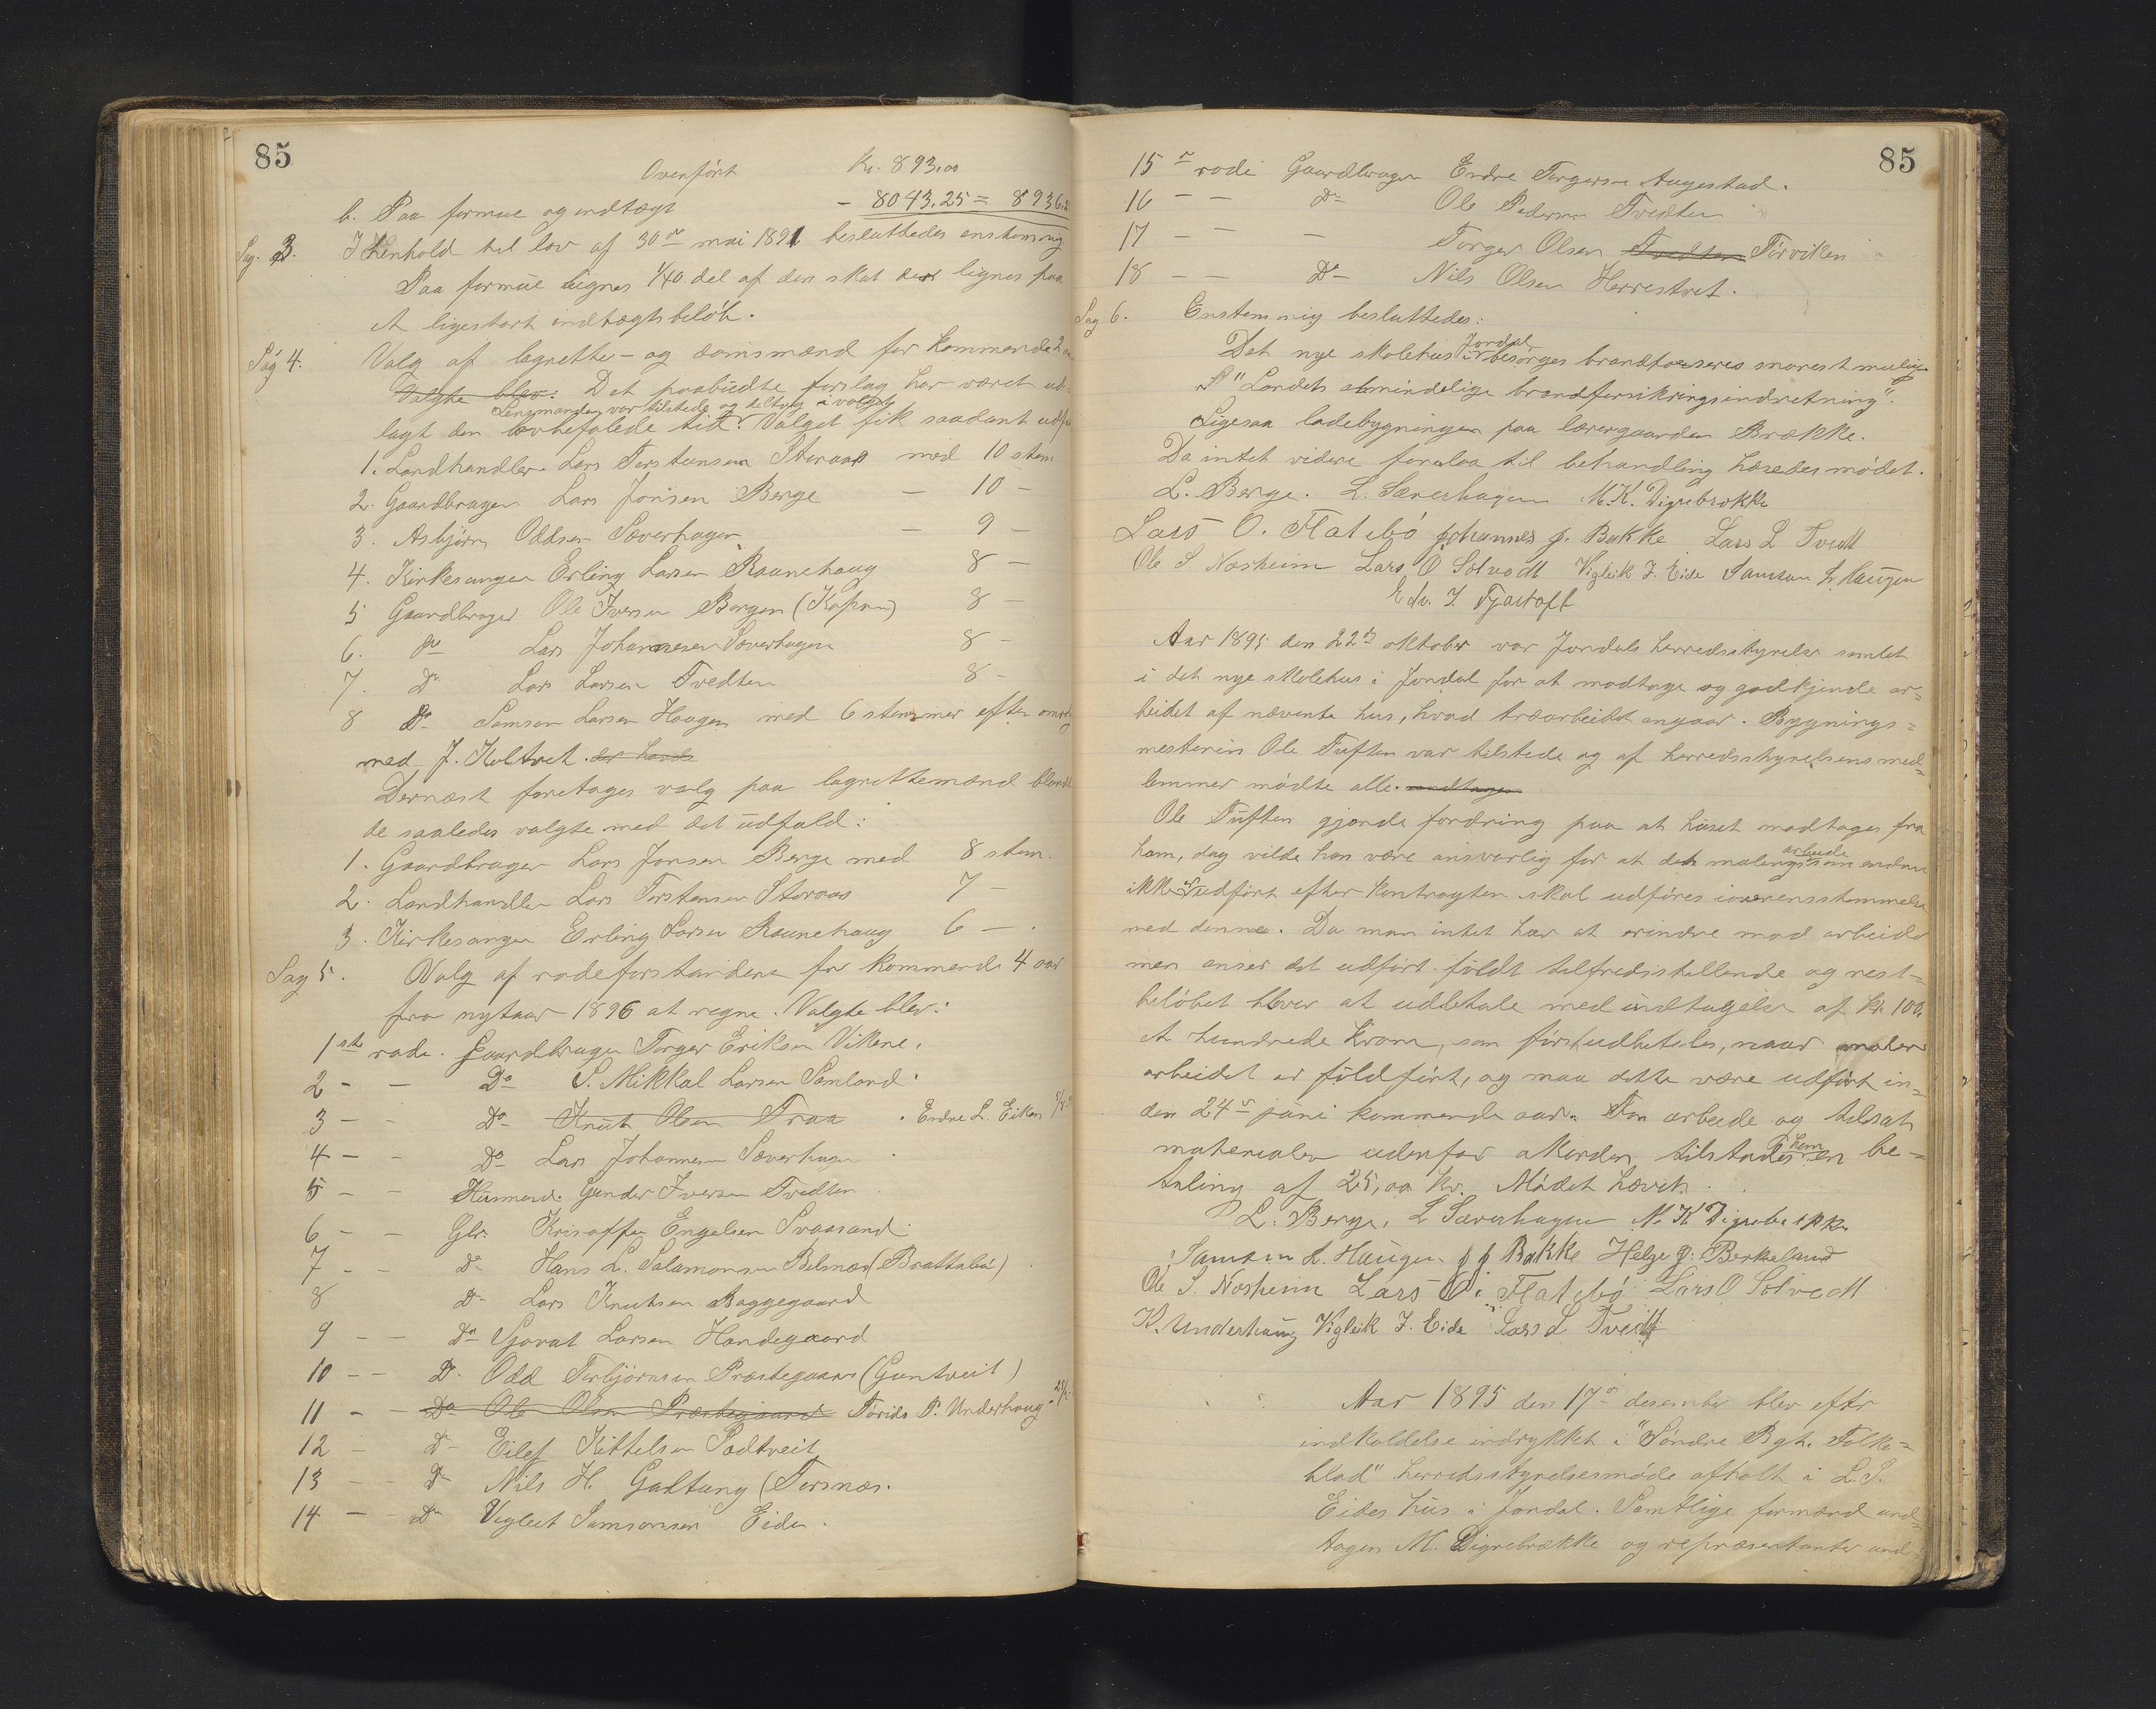 85
Overført Kr. 893,00
b. Paa formue og indtægt - 8043.25 = 8936.2
Sag. 3. I Henhold til lov af 30te mai 1891 besluttedes enstemmig
Paa formue lignes 1/40 del af den skat der lignes paa
et ligestort indtægtsbeløb.
Sag 4. Valg af lagrette- og domsmænd for kommende
Valgte blev: Det paabudte forslag har været ud-
Lensmanden var tilstede og deltog i valget
lagt den lovbefalede tid. Valget fik saadant udf
1. Landhandler Lars Torstensen Storaas med 10 stem
2. Gaardbruger Lars Jonsen Berge - 10 -
3. Asbjørn Oddsen Sæverhagen - 9 -
4. Kirkesanger Erling Larsen Raunehaug 8 -
5 Gaardbruger Ole Iversen Bergen 8 -
6. Do Lars Johannesen Sæverhagen 8 -
7. Do Lars Larsen Tvedten 8 -
8 Do Samson Larsen Haugen med 6 stemmer efter
med J. Koltvet.
Dernæst foretages valg paa lagrettemænd blandt
de saaledes valgte med det udfald:
1. Gaardbruger Lars Jonsen Berge med 8 stem.
2. Landhandler Lars Torstensen Storaas 7 -
3. Kirkesanger Erling Larsen Raunehaug 6 -
Sag 5. Valg af rodeforstandere for kommende 4 aar
fra nytaar 1896 at regne. Valgte blev:
1ste rode. Gaardbruger Torger Eriksen Vikene.
2 - - Do S. Mikkal Larsen Samland
3 - - Do Knut Olsen Traa . Endre L. Eiken
4 - - Do Lars Johannesen Sæverhagen
5 - - Husmand. Gunder Iversen Tvedten
6 - - Gbr. Kristoffer Engelsen Svaasand
7 - - do Hans L. Salamonsen Belsnæs (Brattabø)
8 Do Lars Knutsen Baggegaard
9 - - Do Sjovat Larsen Handegaard
10 - - Do Odd Torbjørnsen Præstegaard (Guntveit)
11 - - Do Ole Olsen Præstegaard P. Underhaug
12 - do Eilef Kittelsen Sodtveit
13 - - Do Nils H. Galtung (Torsnæs.
14 - - Do Vigleit Samsonsen Eide.
85
15de rode Gaardbruger Endre Torgersen Augestad.
16 - - Do Ole Pedersen Tvedten
17 - - - Torger Olsen Tvedten Tørviken
18 - - Do Nils Olsen Herrestvet.
Sag 6. Enstemmig besluttedes:
Jondal
Det nye skolehus i besørges brandtakseres snarest mulig
i "Landets almindelige brandforsikringsindretning".
Ligesaa ladebygningen paa lærergaarden Brække.
Da intet videre forelaa til behandling hævedes mødet.
L. Berge. L. Sæverhagen M. K. Digrebrække
Lars O. Flatebø Johannes J. Bakke Lars L Tvedt
Ole S Næsheim Lars O Solvedt Vigleik J. Eide Samson L Haugen
Edv. J. Tjostoft
Aar 1895 den 22de oktober var Jondals herredsstyrelse samlet
i det nye skolehus i Jondal for at modtage og godkjende ar-
beidet af nævnte hus, hvad træarbeidet angaar. Bygnings-
mesteren Ole Tuften var tilstede og af herredsstyrelsens med-
lemmer mødte alle. undtagen
Ole Tuften gjorde fordring paa at huset modtages fra
arbeide
ham, dog vilde han være ansvarlig for at det malings som endnu
ikke er udført efter kontragten skal udføres i overensstemmelse
med denne. Da man intet har at erindre mod arbeide
men anser det udført fuldt tilfredsstillende og rest-
beløbet bliver at udbetale med undtagelse af Kr. 100.
et hundrede kroner, som først udbetales, naar maler
arbeidet er fuldført, og maa dette være udført in-
den 24de juni kommende aar. For arbeide og tilsat
ham
materialer udenfor akorden tilstodes en be-
taling af 25,00 Kr. Mødet hævet.
L. Berge. L Sæverhagen M. K Digrebrække
Samson L. Haugen J J Bakke Helge J. Berkeland
Ole S. Næsheim Lars O. Flatebø Lars O Solvedt
K. Underhaug Vigleik J. Eide Lars L Tvedt
Aar 1895 den 17de desember blev efter
indkaldelse indrykket i "Søndre Bgh. Folke-
blad" herredsstyrelsesmøde afholt i L. S.
Eides hus i Jondal. Samtlige formænd und-
tagen M. Digrebrække og repræsentanter und-